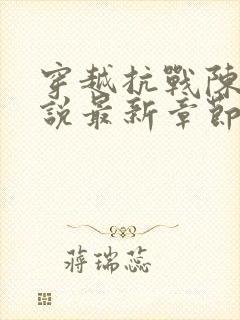 穿越抗戰陳
說最新章節
蔣瑞蕊